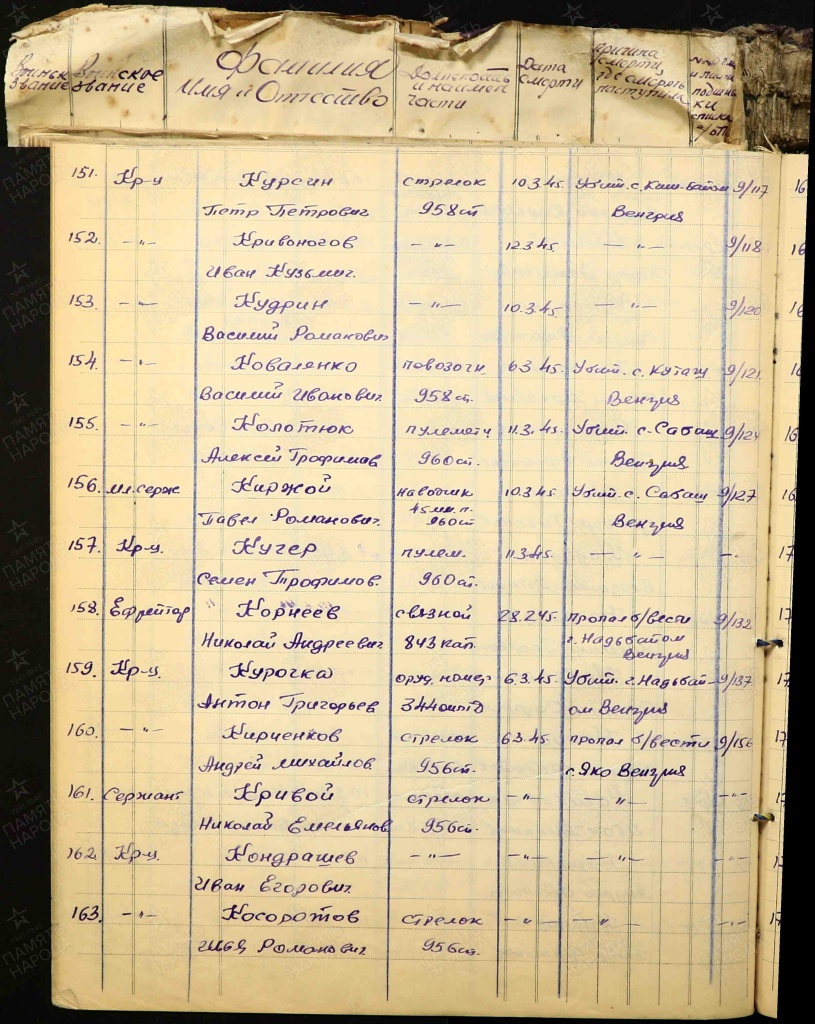 Воинское звание
Фамилия
Имя и Отчество
Должность и наимен части
Дата смерти
причина смерти,
151. Кр-ц Курсин стрелок 10.3.45. Убит. с. Киш-Батом 9/117
Петр Петрович 958сп Венгрия
152. —"— Кривоногов —"— 12.3.45. —"— 9/118
Иван Кузьмич.
153. —"— Кудрин —"— 10.3.45. —"— 9/120
Василий Романович
154. —"— Коваленко повозочн. 6.3.45. Убит. с. Куташ 9/121
Василий Иванович 958сп. Венгрия
155. —"— Колотюк пулеметч 11.3.45. Убит. с. Сабаш 9/124
Алексей Трофимов 960сп. Венгрия
156. мл.серж Киржой наводчик 10.3.45 Убит. с. Сабаш 9/127
Павел Романович. 45мм.п. 960сп Венгрия
157. Кр-ц. Кучер пулем. 11.3.45 —"— —"—
Семен Трофимов. 960сп.
158. Ефрейтор Корнеев связной 28.2.45. пропал б/вести 9/132
Николай Андреевич 843кап. г. Надьбайом
Венгрия
159. Кр-ц. Курочка оруд. номер 6.3.45. Убит. г. Надьбай- 9/137
Антон Григорьев 344оиптд ом Венгрия
160. —"— Кириенков стрелок 6.3.45. пропал б/вести 9/156
Андрей Михайлов. 956сп. с. Яко Венгрия
161. Сержант Кривой стрелок —"— —"— —"—
Николай Емельянов. 956сп.
162. Кр-ц. Кондрашев —"— —"— —"— —"—
Иван Егорович
163. —"— Косоротов стрелок —"— —"— —"—
Илья Романович 956сп.